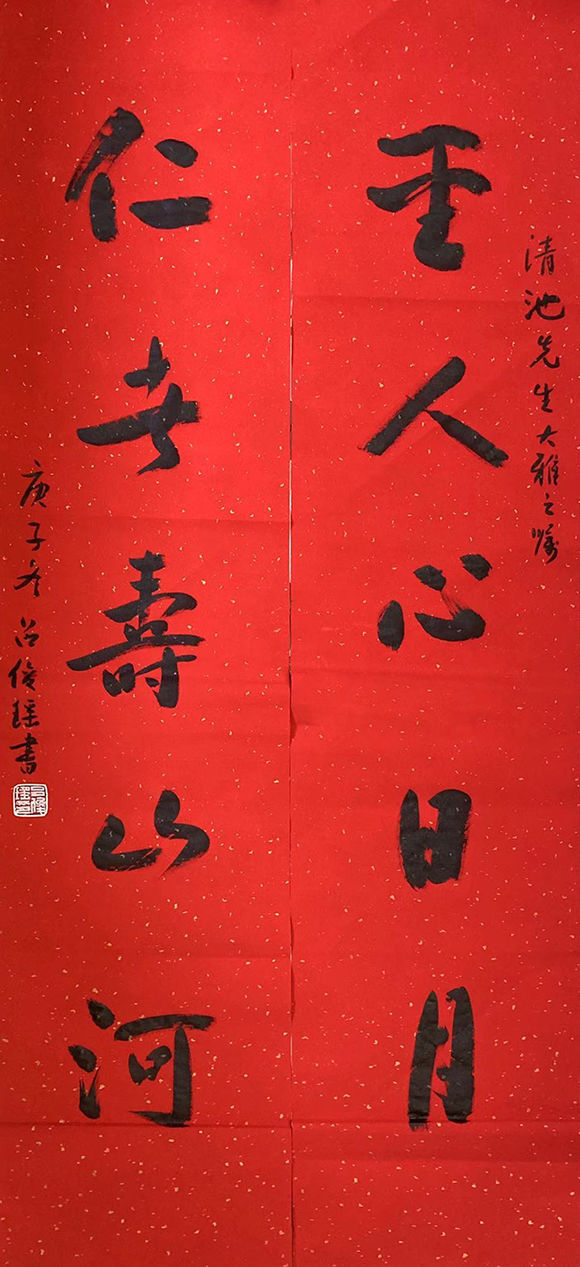 清池先生大雅之嘱
至人心日月
仁者壽山河
庚子冬 吕俊書